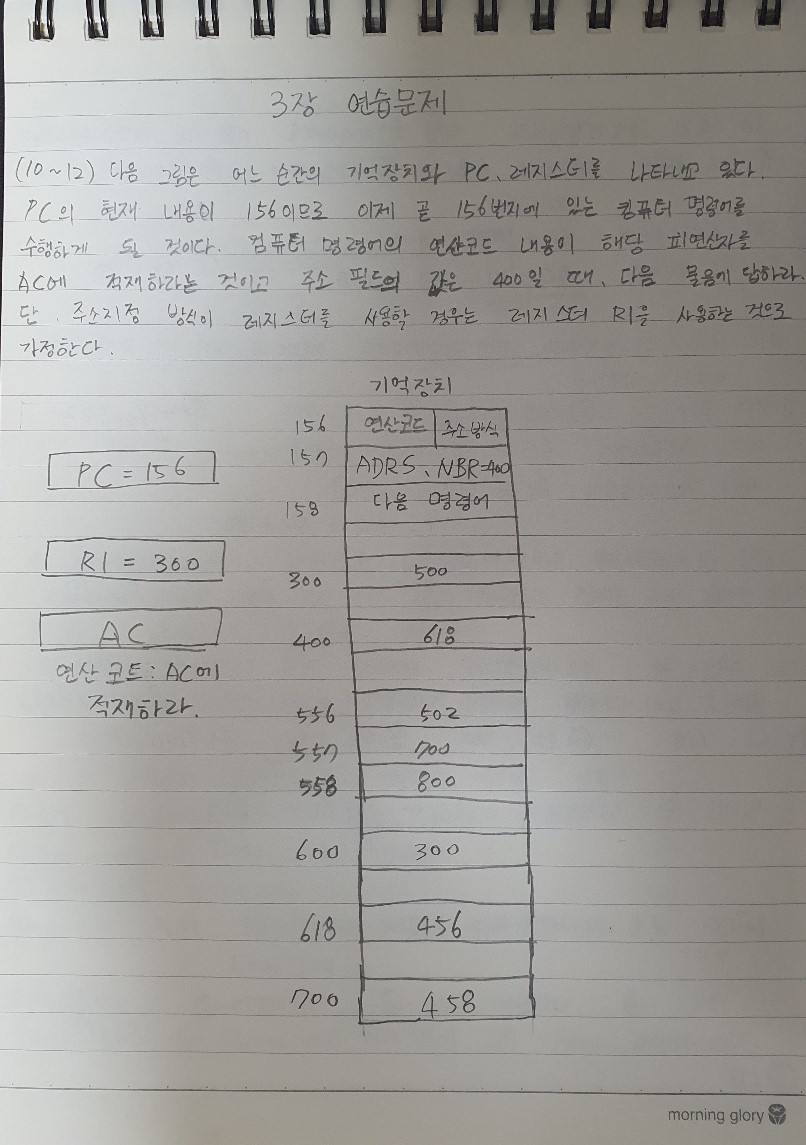 3장 연습문제
(10~12) 다음 그림은 어느 순간의 기억장치와 PC, 레지스터를 나타내고 있다.
PC의 현재 내용이 156이므로 이제 곧 156번지에 있는 컴퓨터 명령어를
수행하게 될 것이다. 컴퓨터 명령어의 연산코드 내용이 해당 피연산자를
AC에 적재하라는 것이고 주소 필드의 값은 400일 때, 다음 물음에 답하라.
단, 주소지정 방식이 레지스터를 사용할 경우는 레지스터 R1을 사용하는 것으로
가정한다.
기억장치
156 연산코드 주소방식
PC = 156
157 ADRS, NBR=400
158 다음 명령어
R1 = 300
300 500
AC
400 618
연산 코트: AC에
적재하라.
556 502
557 700
558 800
600 300
618 456
700 458
morning glory